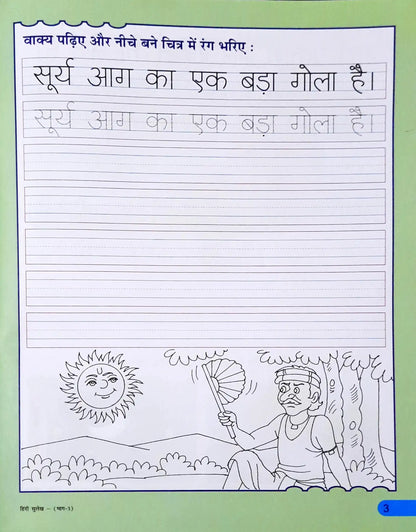 वाक्य पढ़िए और नीचे बने चित्र में रंग भरिए :
सूर्य आग का एक बड़ा गोला है।
सूर्य आग का एक बड़ा गोला है।
हिन्दी सुलेख – (भाग-1)
3